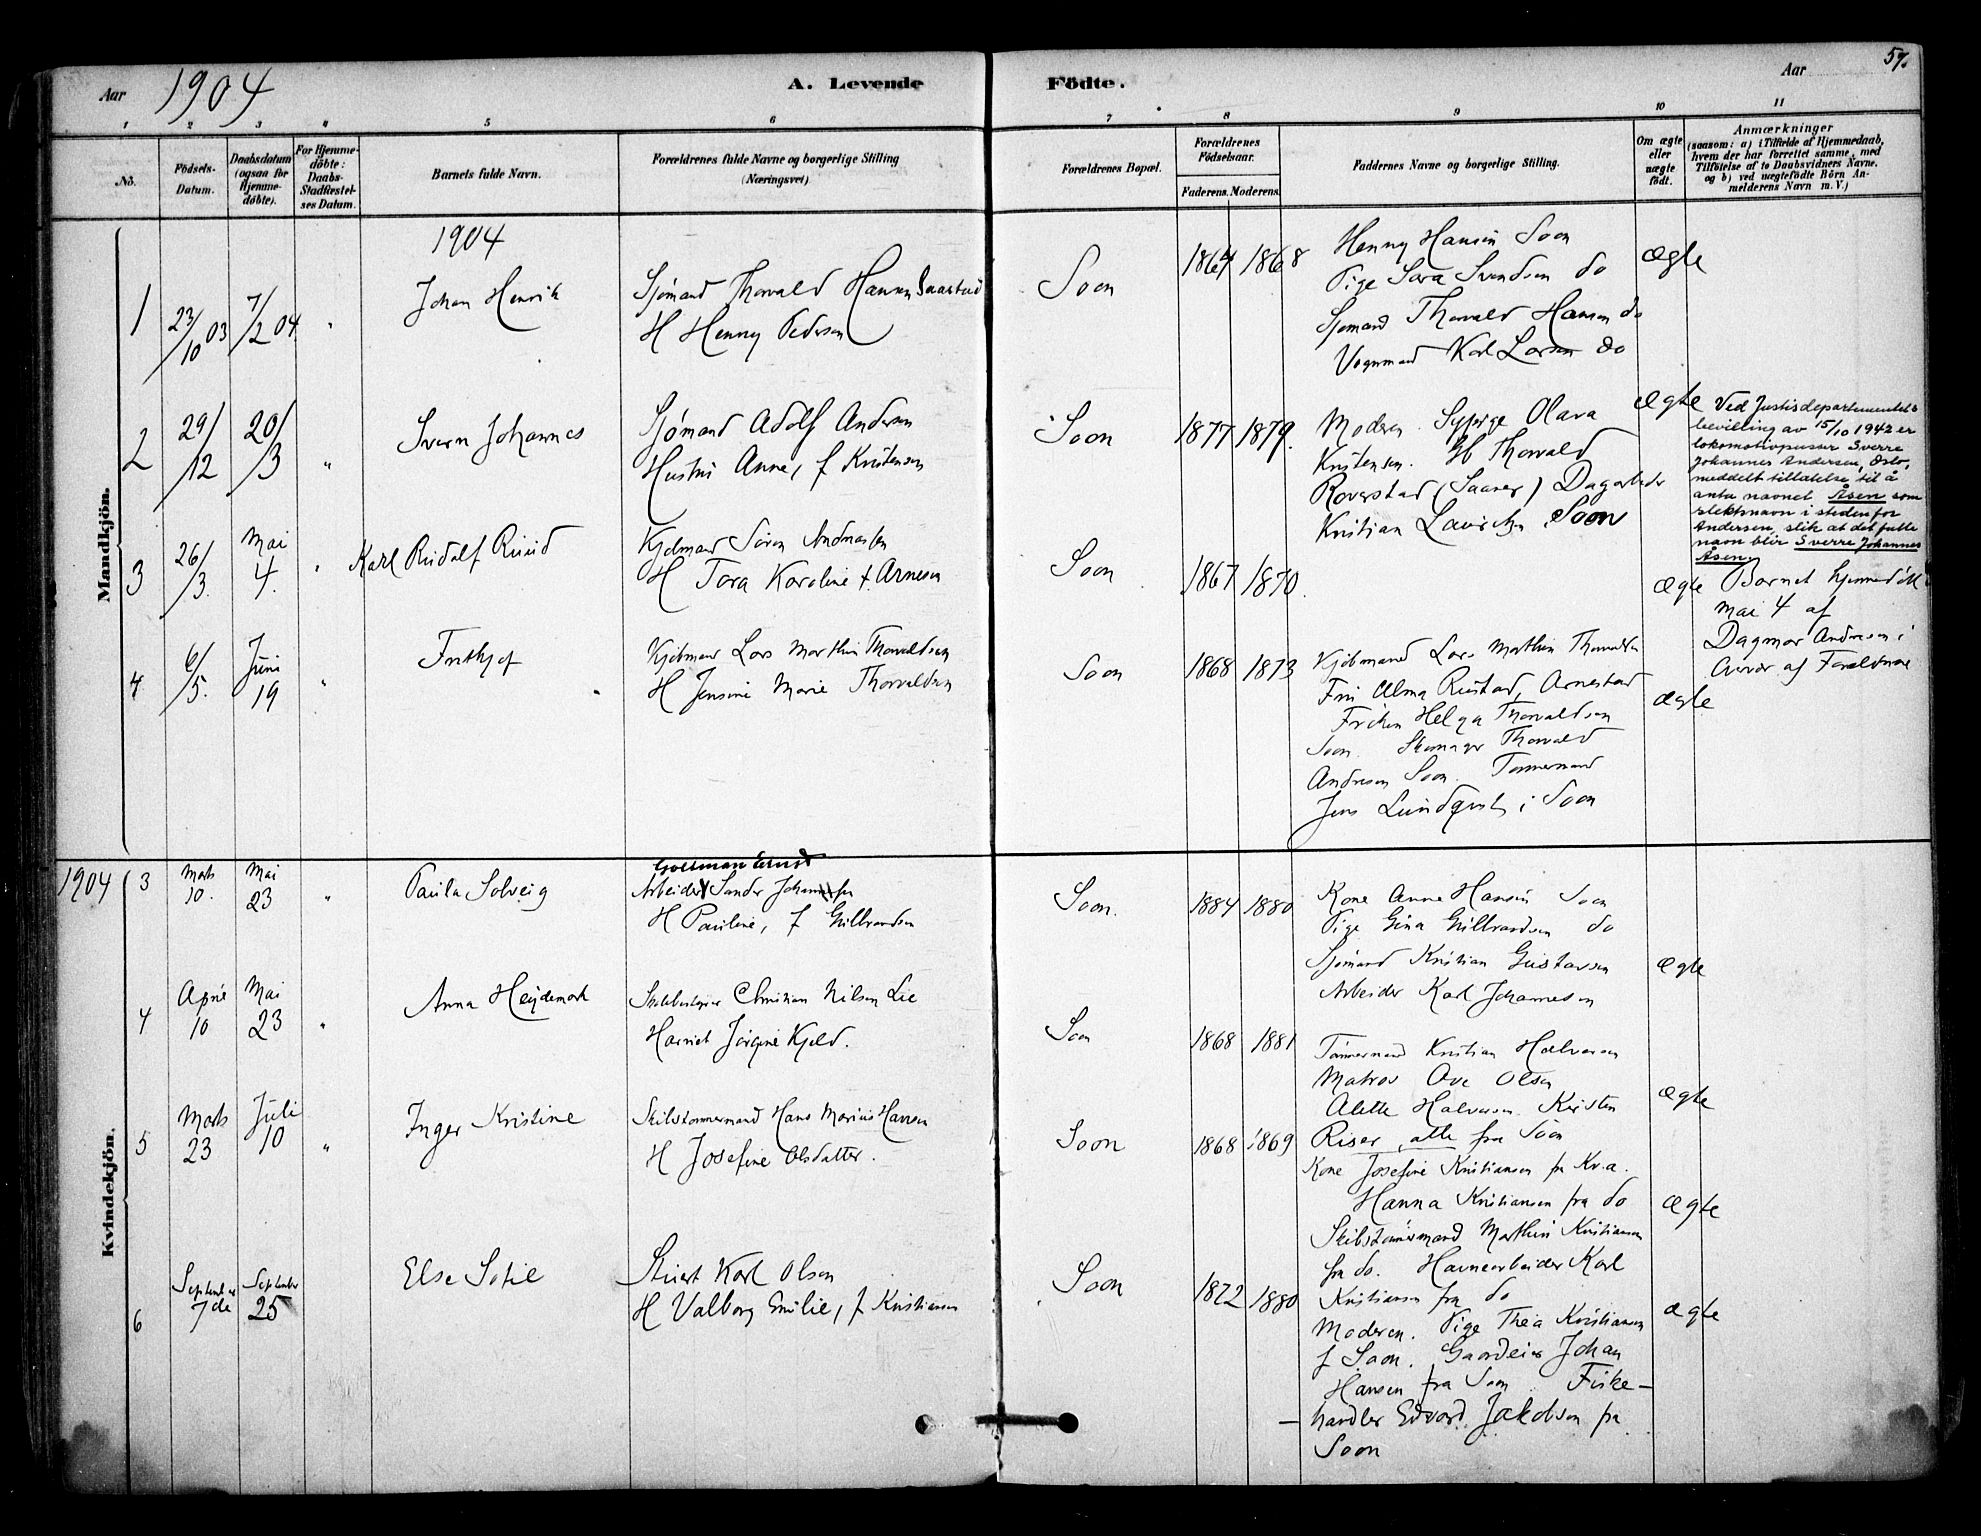 Aar 1904
A. Levende Födte.
Aar
57.
1 2 3 4 5 6 7 8 9 10 11
No.
Födsels-Datum.
Daabsdatum (ogsaa for Hjemme-døbte).
For Hjemme-døbte: Daabs-Stadfæstel-ses Datum.
Barnets fulde Navn.
Forældrenes fulde Navne og borgerlige Stilling
(Næringsvei)
Forældrenes Bopæl.
Forældrenes Födselsaar.
Faderens. Moderens.
Faddernes Navne og borgerlige Stilling.
Om ægte eller uægte født.
Anmærkninger
(saasom: a) i Tilfælde af Hjemmedaab,
hvem der har forrettet samme, med
Tilføielse af to Daabsvidners Navne,
og b) ved uægtefödte Börn An-
melderens Navn m. V.)
Mandkjön.
1904
1
23/10 03
7/2 04
"
Johan Henrik
Sjømand Thorvald Hansen Saastad
H Henny Pedersen
Soon
1864 1868
Henny Hansen Soon
Pige Sara Svendsen do
Sjømand Thorvald Hansen do
Vognmand Karl Larsen do
Ægte
2
29/12
20/3
"
Sverre Johannes
Sjømand Adolf Andersen
Hustru Anne, f Kristensen
Soon
1877 1879.
Moderen. Sypige Olava
Kristensen. Thorvald
Roverstad (Saaner) Dagarbeider
Kristian Lauritzen, Soon
Ægte
Ved Justisdepartementets
bevilling av 15/10 1942 er
lokomotivpusser Sverre
Johannes Andersen, Oslo,
meddelt tillatelse til å
anta navnet Åsen som
slektsnavn i steden for
Andersen, slik at det fulle
navn blir Sverre Johannes
Åsen
3
26/3.
Mai 4.
"
Karl Rudolf Ruud
Kjøbmand Søren Andreasen
H Tora Karoline f. Arnesen
Soon
1867 1870.
Ægte
Barnet hjemmedøbt
mai 4 af
Dagmar Andresen i
Overvær af Forældrene
4
6/5.
Juni 19
"
Frithjof
Kjøbmand Lars Marthin Thorvaldsen
H Jensine Marie Thorvaldsen
Soon
1868 1873
Kjøbmand Lars Marthin Thorvaldsen
Fru Alma Rustad, Arnestad
Frøken Helga Thorvaldsen
Soon. Skomager Thorvald
Andresen Soon. Tømmermand
Jens Lundqvist i Soon
Ægte
Kvindekjön.
1904
3
Marts 10.
Mai 23
"
Paula Solveig
Arbeider Sander Johannesen
H Pauline, f Gulbrandsen
Soon.
1884 1880
Kone Anne Hansen Soon
Pige Gina Gulbrandsen do
Sjømand Kristian Gustavsen
Arbeider Karl Johannesen
Ægte
4
April 10
Mai 23
"
Anna Heydemark
Skibsbestyrer Christian Nilsen Lie
Harriet Jørgine Kjeld.
Soon
1868 1881
Tømmermand Kristian Halvorsen
Matros Ove Olsen
Alette Halvorsen. Kirsten
Riser, alle fra Soon
Ægte
5
Marts 23
Juli 10
"
Inger Kristine
Skibstømmermand Hans Marius Hansen
H Josefine Olsdatter.
Soon
1868 1869
Kone Josefine Kristiansen fra
Hanna Kristiansen fra do
Skibstømmermand Marthin Kristiansen
fra do. Havnearbeider Karl
Kristiansen fra do
Ægte
6
September 7de
September 25
Else Sofie
Stuert Karl Olsen
H Valborg Emilie, f Kristiansen
Soon
1872 1880
Moderen. Pige Thea Kristiansen
f Soon. Gaardeier Johan
Hansen fra Soon. Fiske-
handler Edvard Jakobsen fra
Soon
Ægte